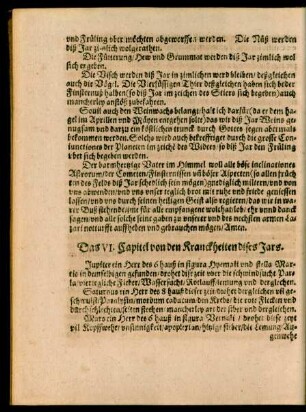 und Früling ober möchten abgeworffen werden. Die Nüß werden
diß Jar zimlich wolgerathen.
Die Fütterung/Hew und Grummat werden diß Jar zimlich wol
sich ergeben.
Die Visch werden diß Jar in zimlichen werd bleiben/ deßgleichen
auch die Vögel. Die Vierfüssigen Thier deßgleichen haben sich beder
Finsternuß halben/ so diß Jar im zeichen des Stiers sich begeben/auch
mancherley anstöß zubefahren.
Souil auch den Weinwachs belangt/halt ich darfür/da er dem ha-
gel in Aprillen und Mayen entgehen solte/das wir diß Jar Weins ge-
nugsam und darzu ein köstlichen trunck durch Gottes segen abermals
bekommen werden. Solchs wird auch bekrefftiget durch die grosse Con-
iunctionen der Planeten im zeichet des Wider/ so diß Jar den Früling
über sich begeben werden.
Der barmhertzige Vater im Himmel woll alle böse inclinationes
Astrorum/der Cometen/Finsternussen uñ böser Aspecten/so allen früch-
ten des Felds diß Jar schedlich sein mögen/gnediglich miltern/und von
uns abwenden/und uns vor anders trost in ruhe und fride geniessen
lassen/und uns durch seinen heiligen Geist also regieren/das wir in wa-
rer Buß stehend/ime für alle empfangene wolthat/lob ehr unnd danck
sagen/und alle solche seine gaben zu unserer und des nechsten armen La-
zari notturfft auffheben und gebrauchen mögen/ Amen.
Das VI. Capitel von den Kranckheiten dises Jars.
Jupiter ein Herr des 6 hauß in figura
tis in demselbigen gefunden/drohet diß zeit über die schwindsucht
viertegliche Fieber/Wassersucht/Rotlauff
Saturnus ein Herr des 8 hauß dieser zeit drohet dergleichen vil ge-
schwulst/Paralysin/morbum caducum den Krebs/die rote Flecken und
mancherley art der siber und dergleichen.
Mars ein Herr des 6 hauß in figura Vernali/ drohet diese zeyt
vil Kopffwehe/unsinnigkeit/apoplexian/hitzige fieber/die Lemung/Au-
genwehe